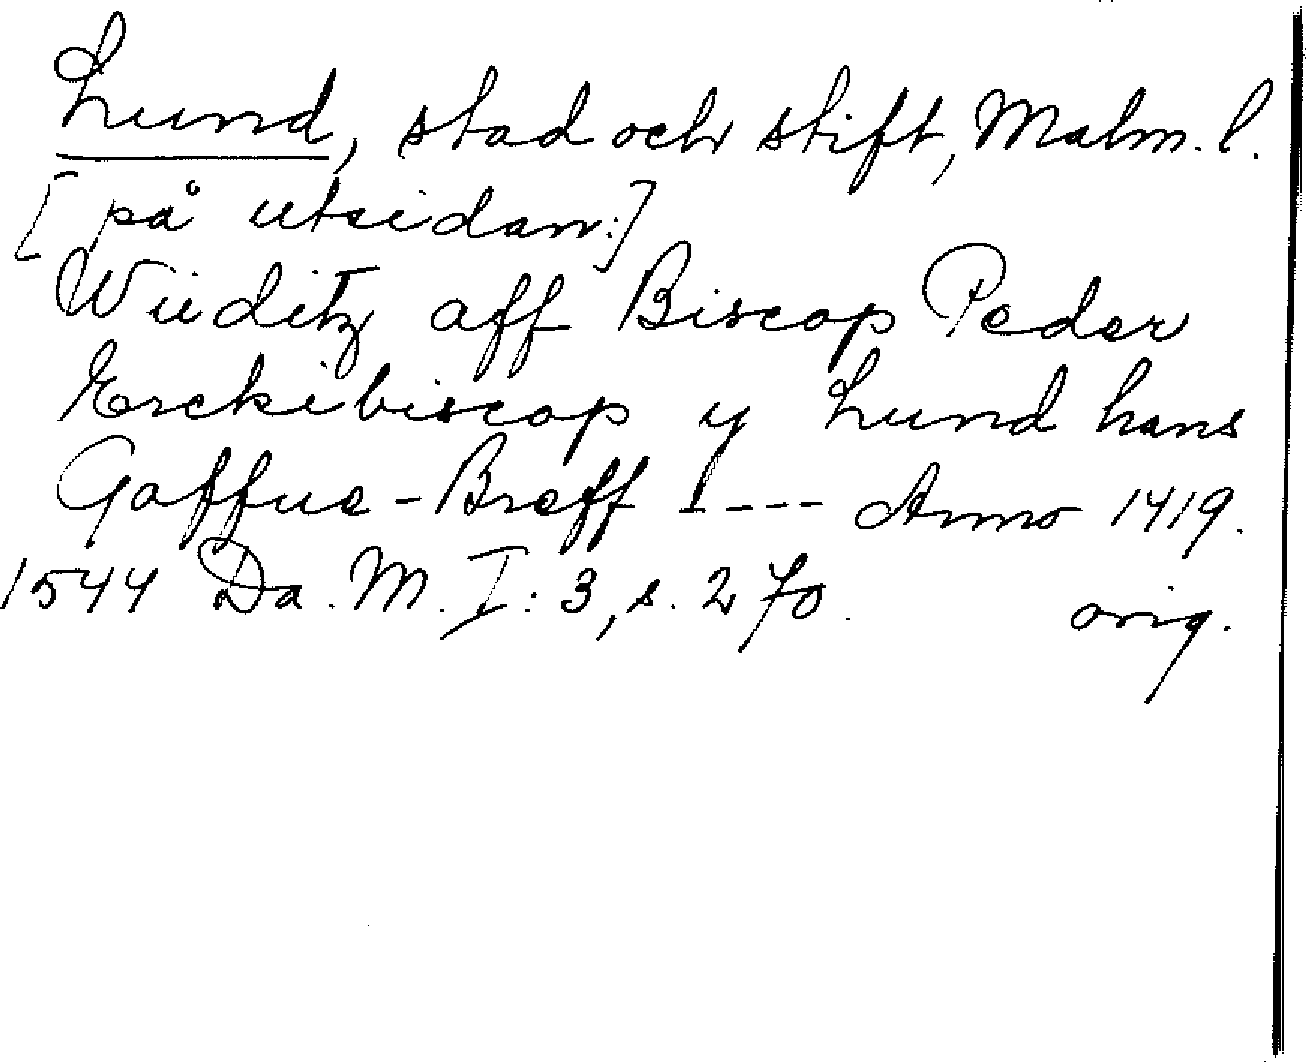 Lund, stad och stift, Malm. l.
[på utsidan:]
Wiiditz aff Biscop Peder
Erckibiscop y Lund hans
Gaffue-Breff I --- Anno 1419.
1544 Da. M. I: 3, s. 270. orig.